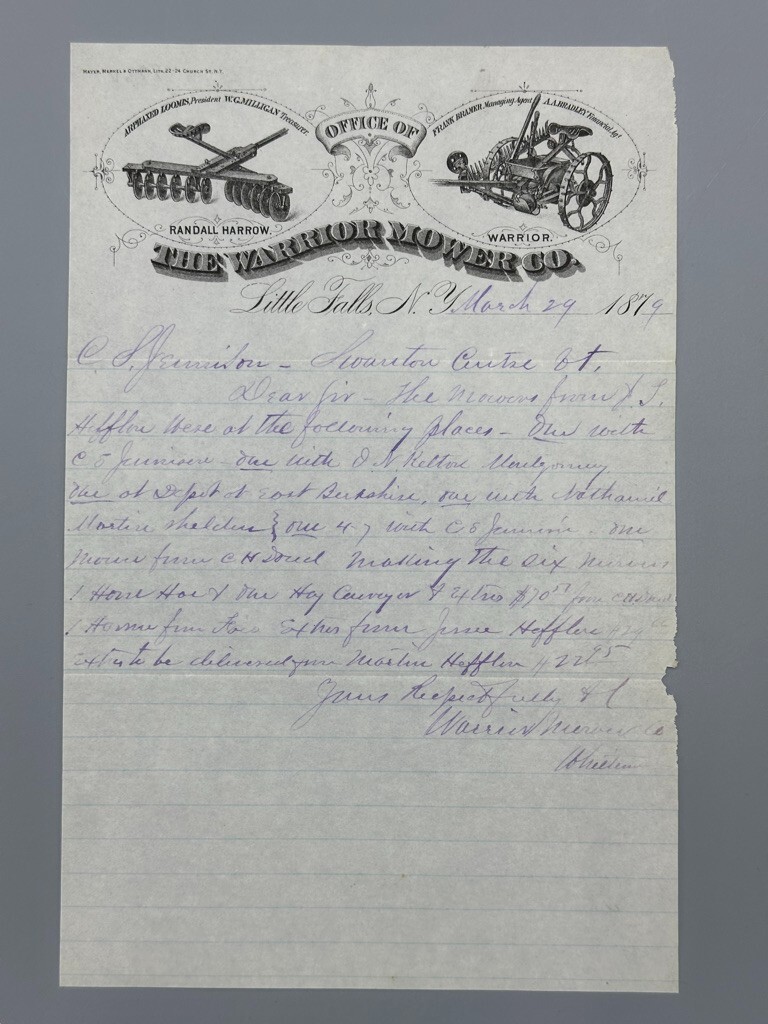 MAYER, MERKEL & OTTMANN, LITH. 22-24 CHURCH ST. N.Y.
ARPHAXED LOOMIS, President W.G. MILLIGAN Treasurer
OFFICE OF
FRANK BRAMER Managing Agent A.A. BRADLEY Financial Agt
RANDALL HARROW.
WARRIOR.
THE WARRIOR MOWER CO.
Little Falls, N.Y. March 29 1879
C. S. Jennison – Swanton Centre Vt.
Dear Sir – The Mowers from
Hefflon were at the following places – One with
C E Jennison – one with O N Kelton Montgomery
one at Depot at East Berkshire, one with Nathaniel
Martin Sheldon } one 4-7 with C E Jennison. one
Mower from C H making the six mowers
1 Horse Hoe & One Hay Conveyor & Extras $70 from C H
1 from Extras from Jesse Hefflon
Extras to be delivered from Martin Hefflon
Yours Respectfully
Warrior Mower Co